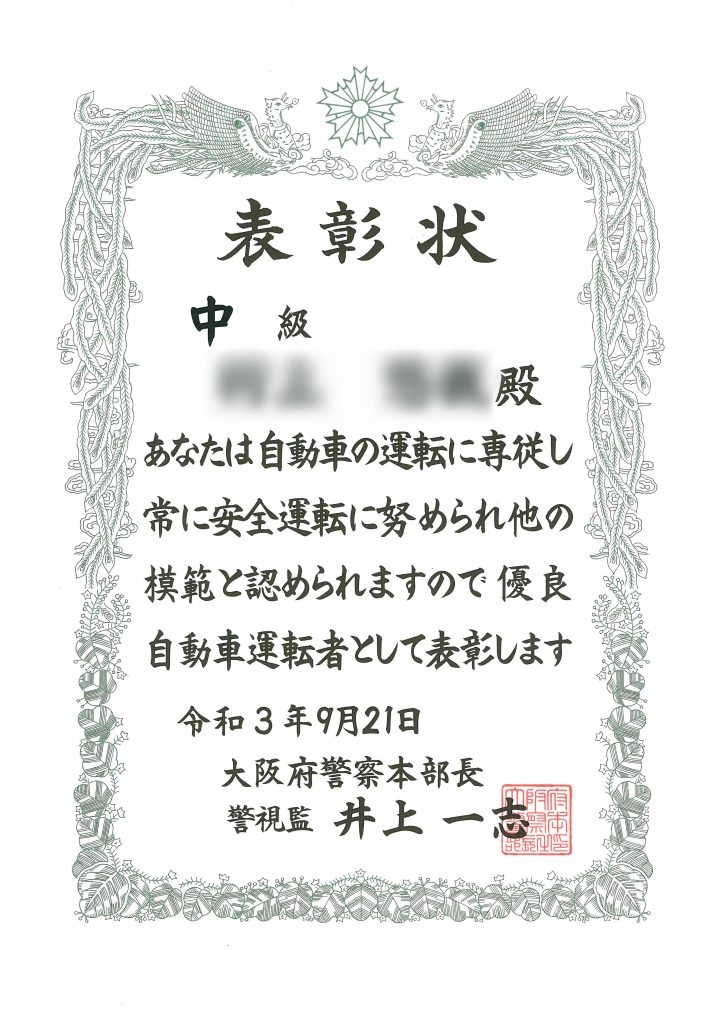 表彰状
中 級
殿
あなたは自動車の運転に専従し
常に安全運転に努められ他の
模範と認められますので優良
自動車運転者として表彰します
令和3年9月21日
大阪府警察本部長
警視監 井上 一志